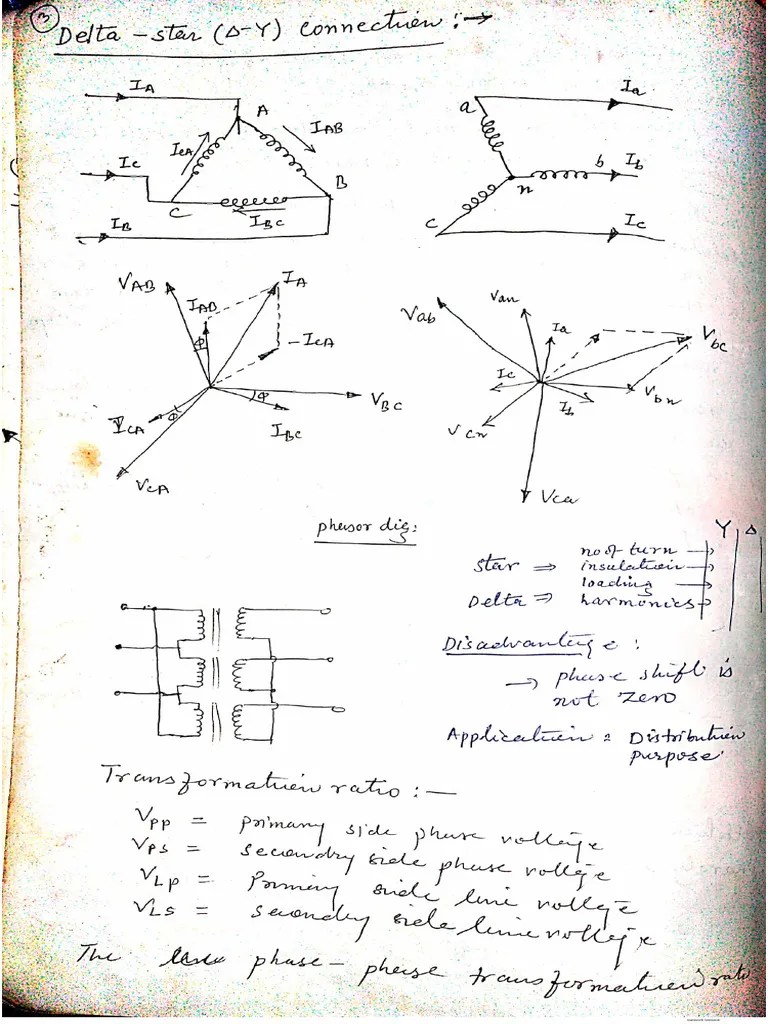 3
Delta -star (Δ-Y) connection :→
IA
A
ICA
IAB
Ic
B
C
IBC
IB
Ia
a
b Ib
n
C
Ic
VAB
IAB
IA
φ
-ICA
φ
VBC
ICA
φ
IBC
VCA
Vab
Van
Ia
Vbc
Ic
Vbn
Ib
Vcn
Vca
phasor dig:
Y Δ
Star ⇒ no of turn →
insulation →
loading →
Delta ⇒ harmonics →
Disadvantage :
→ phase shift is
not zero
Application : Distribution
purpose
Transformation ratio :—
Vpp = primary side phase voltage
Vps = secondry side phase voltge
VLp = Primary side line voltge
VLs = secondry side line voltage
The phase - phase transformation ratio